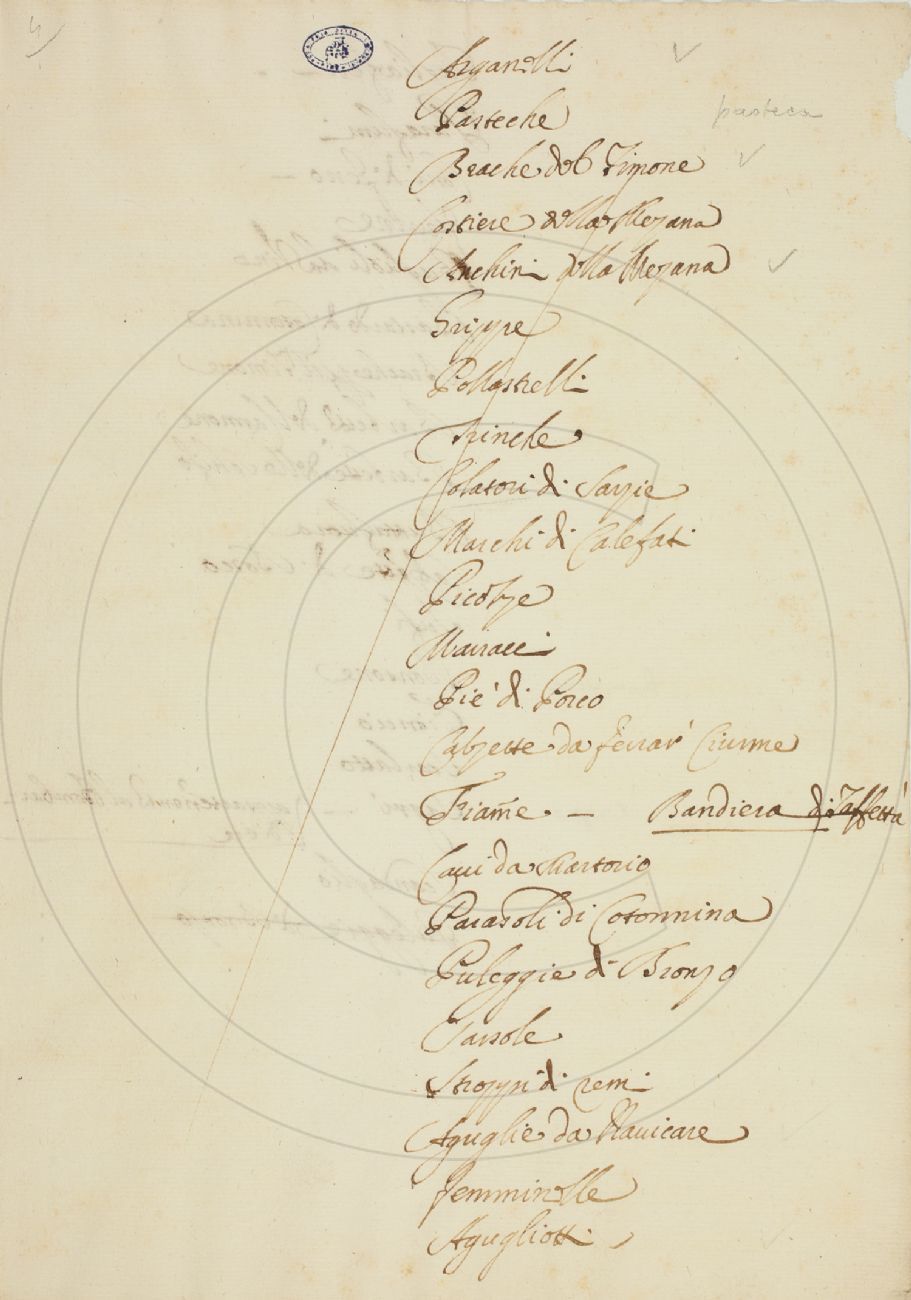 Arganelli
Pasteche
pasteca
Brache del Timone
Costiere della Mezana
Anchini della Mezana
Grippe
Pollastrelli
Trinche
Colatori di Sarzie
Marchi di Calefati
Picozze
Pié di Porco
Calzette da ferrar Ciurme
Fiam̃e. — Bandiera di Taffettà
Caui da
Parasoli di Cotonnina
Puleggie di Bronzo
Stroppi di remi
Aguglie da Nauicare
femminelle
Agugliotti